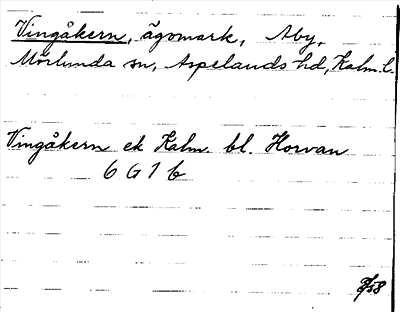 Vingåkern, ägomark, Åby,
Mörlunda sn, Aspelands hd, Kalm. l.
Vingåkern ek Kalm. bl. Horvan
6 G 1 b